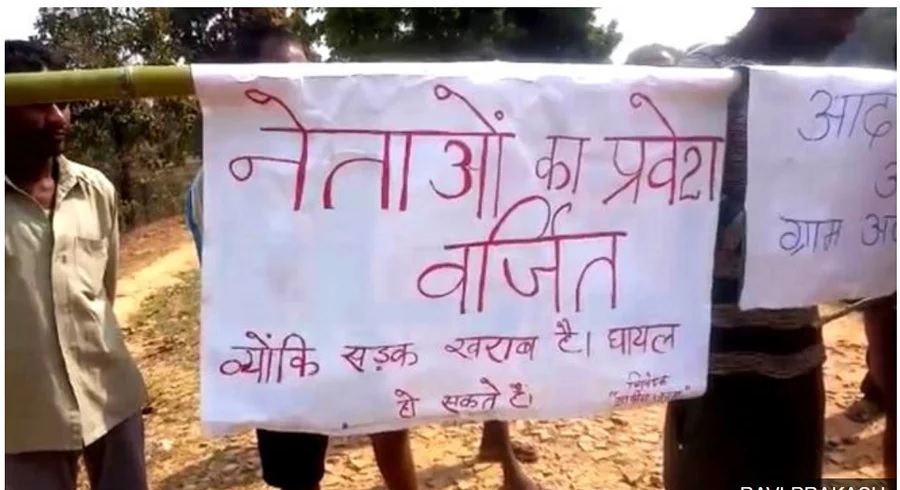 नेताओं का प्रवेश
वर्जित
क्योंकि सड़क खराब है। घायल
हो सकते हैं।
निवेदक
आद
ग्राम
RAVI PRAKASH